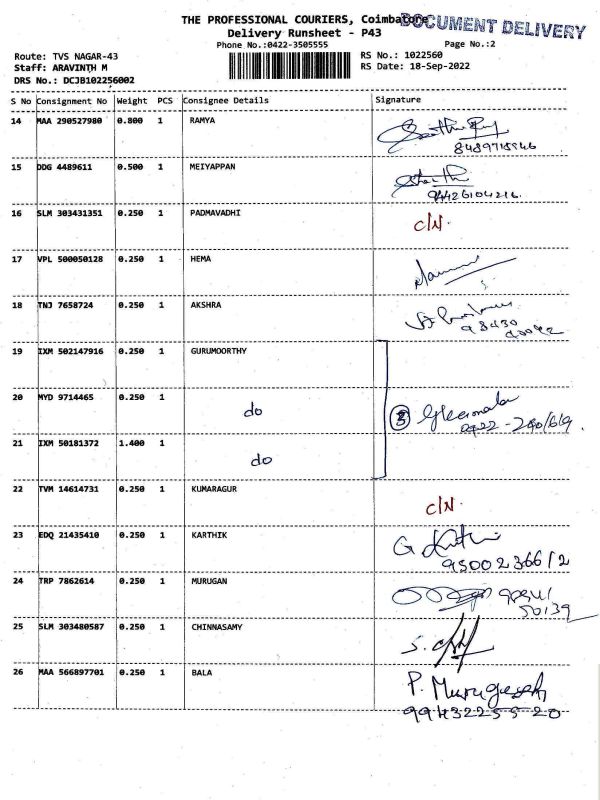 THE PROFESSIONAL COURIERS, Coimbatore
DOCUMENT DELIVERY
Delivery Runsheet - P43
Phone No.:0422-3505555
Page No.:2
Route: TVS NAGAR-43
RS No.: 1022560
Staff: ARAVINTH M
RS Date: 18-Sep-2022
DRS No.: DCJB102256002
S No Consignment No Weight PCS Consignee Details Signature
14 MAA 290527980 0.800 1 RAMYA
15 DDG 4489611 0.500 1 MEIYAPPAN
94426104216
16 SLM 303431351 0.250 1 PADMAVADHI C/N.
17 VPL 500050128 0.250 1 HEMA
18 TNJ 7658724 0.250 1 AKSHRA
98430
19 IXM 502147916 0.250 1 GURUMOORTHY
20 MYD 9714465 0.250 1 do
21 IXM 50181372 1.400 1 do
22 TVM 14614731 0.250 1 KUMARAGUR C/N.
23 EDQ 21435410 0.250 1 KARTHIK
9500236612
24 TRP 7862614 0.250 1 MURUGAN
50139
25 SLM 303480587 0.250 1 CHINNASAMY
26 MAA 566897701 0.250 1 BALA P. Murugesh
9943225520